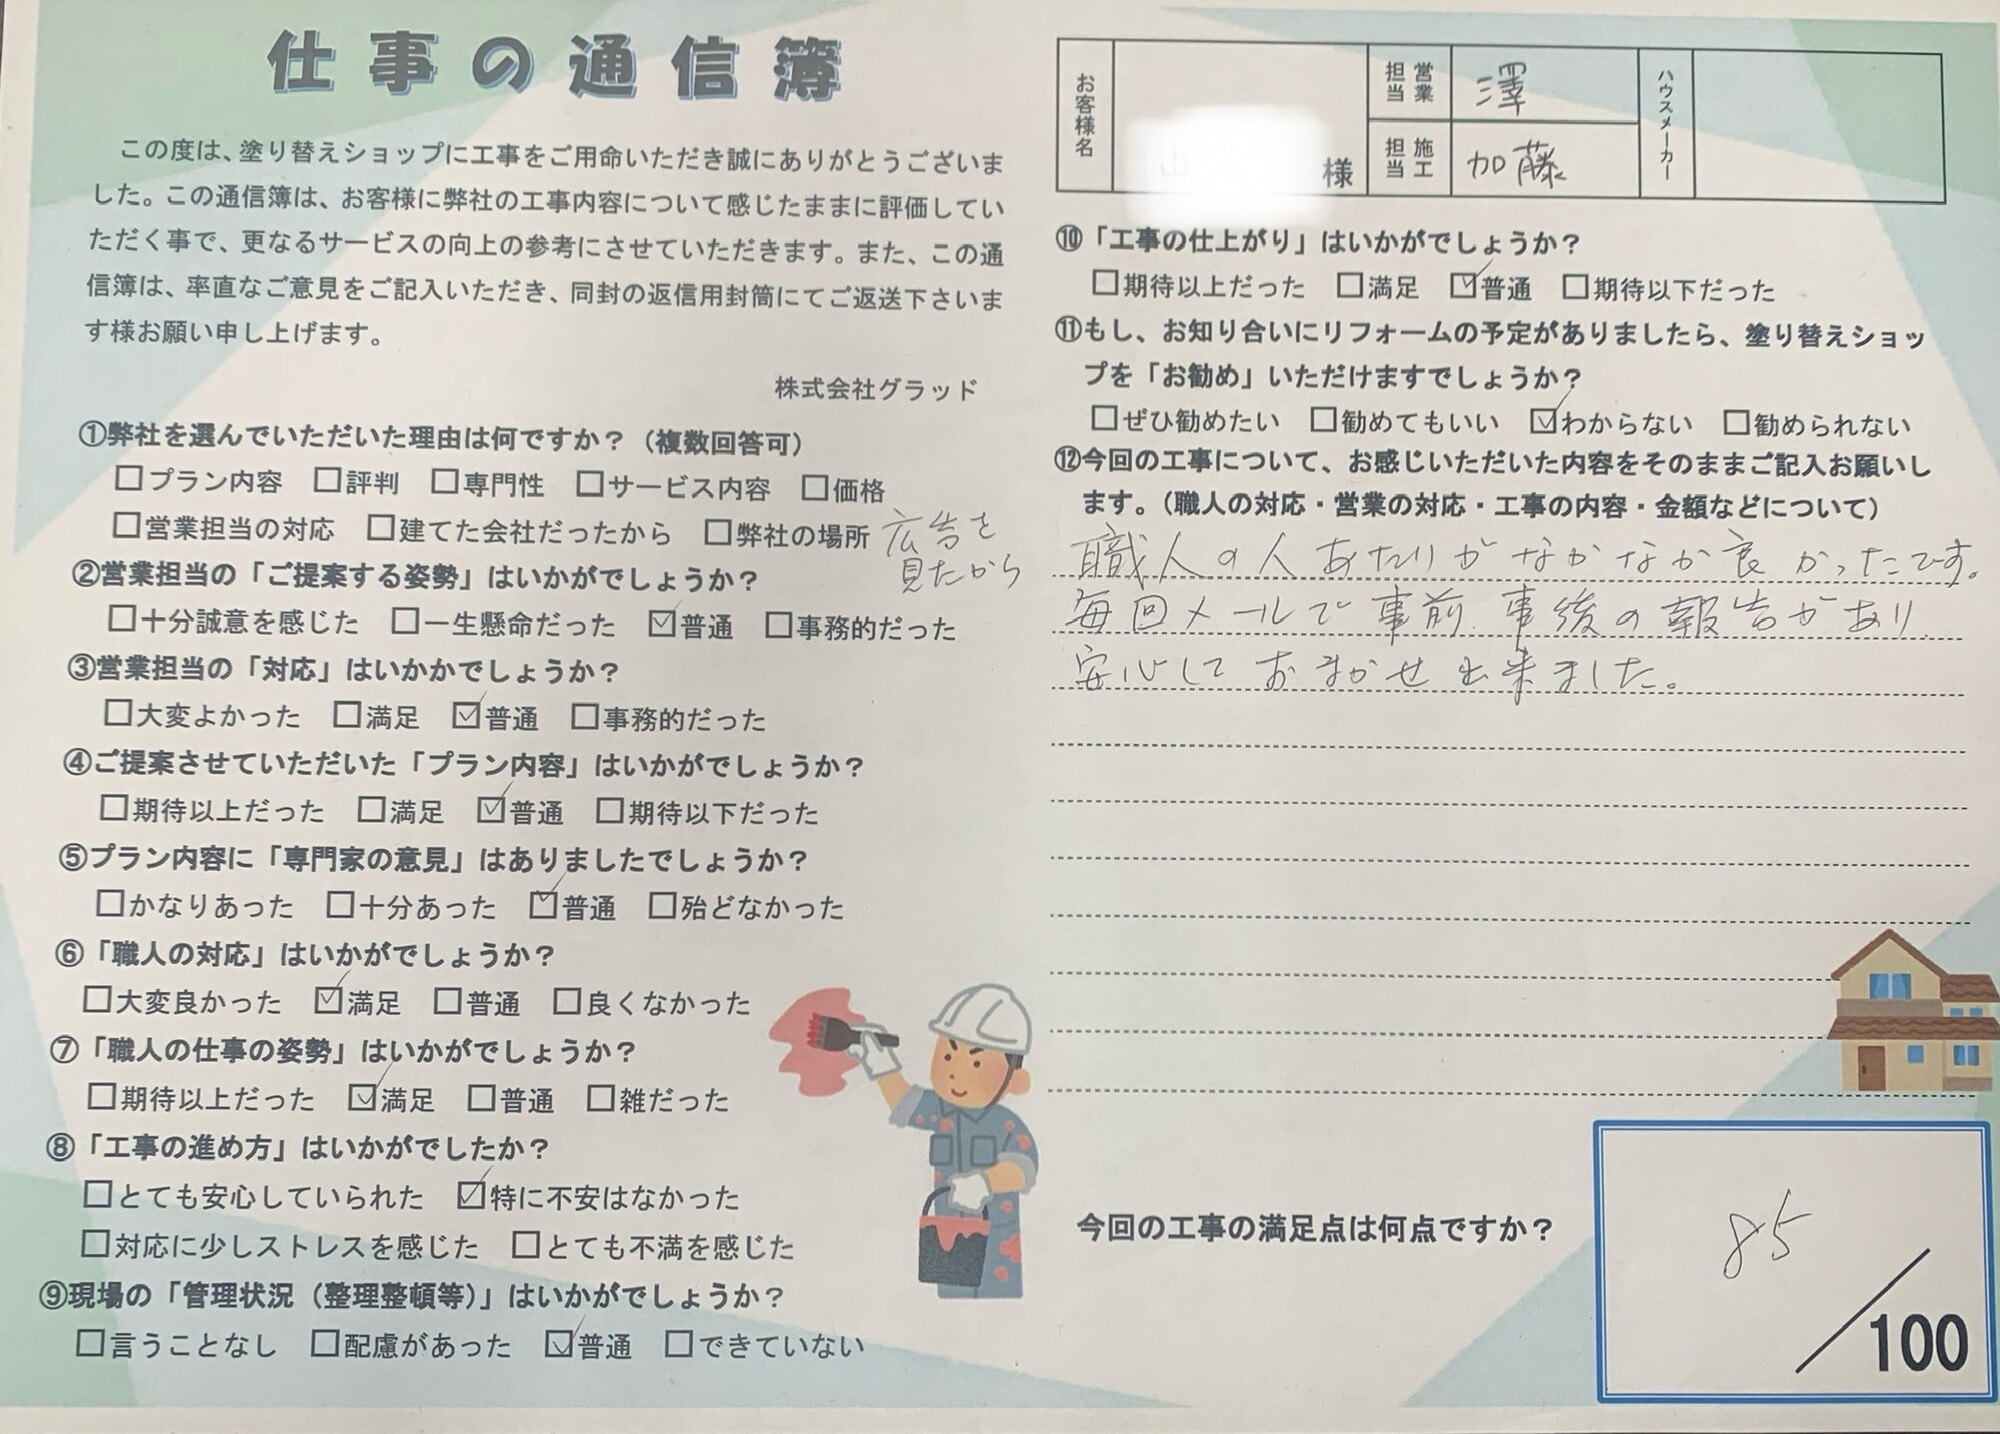 仕事の通信簿
この度は、塗り替えショップに工事をご用命いただき誠にありがとうございま
した。この通信簿は、お客様に弊社の工事内容について感じたままに評価してい
ただく事で、更なるサービスの向上の参考にさせていただきます。また、この通
信簿は、率直なご意見をご記入いただき、同封の返信用封筒にてご返送下さいま
す様お願い申し上げます。
株式会社グラッド
①弊社を選んでいただいた理由は何ですか？（複数回答可）
□プラン内容 □評判 □専門性 □サービス内容 □価格
□営業担当の対応 □建てた会社だったから □弊社の場所 広告を
見たから
②営業担当の「ご提案する姿勢」はいかがでしょうか？
□十分誠意を感じた □一生懸命だった ☑普通 □事務的だった
③営業担当の「対応」はいかかでしょうか？
□大変よかった □満足 ☑普通 □事務的だった
④ご提案させていただいた「プラン内容」はいかがでしょうか？
□期待以上だった □満足 ☑普通 □期待以下だった
⑤プラン内容に「専門家の意見」はありましたでしょうか？
□かなりあった □十分あった ☑普通 □殆どなかった
⑥「職人の対応」はいかがでしょうか？
□大変良かった ☑満足 □普通 □良くなかった
⑦「職人の仕事の姿勢」はいかがでしょうか？
□期待以上だった ☑満足 □普通 □雑だった
⑧「工事の進め方」はいかがでしたか？
□とても安心していられた ☑特に不安はなかった
□対応に少しストレスを感じた □とても不満を感じた
⑨現場の「管理状況（整理整頓等）」はいかがでしょうか？
□言うことなし □配慮があった ☑普通 □できていない
お客様名
様
営業担当
澤
施工担当
加藤
ハウスメーカー
⑩「工事の仕上がり」はいかがでしょうか？
□期待以上だった □満足 ☑普通 □期待以下だった
⑪もし、お知り合いにリフォームの予定がありましたら、塗り替えショッ
プを「お勧め」いただけますでしょうか？
□ぜひ勧めたい □勧めてもいい ☑わからない □勧められない
⑫今回の工事について、お感じいただいた内容をそのままご記入お願いし
ます。（職人の対応・営業の対応・工事の内容・金額などについて）
職人の人あたりがなかなか良かったです。
毎回メールで事前、事後の報告があり
安心しておまかせ出来ました。
今回の工事の満足点は何点ですか？
85
/100